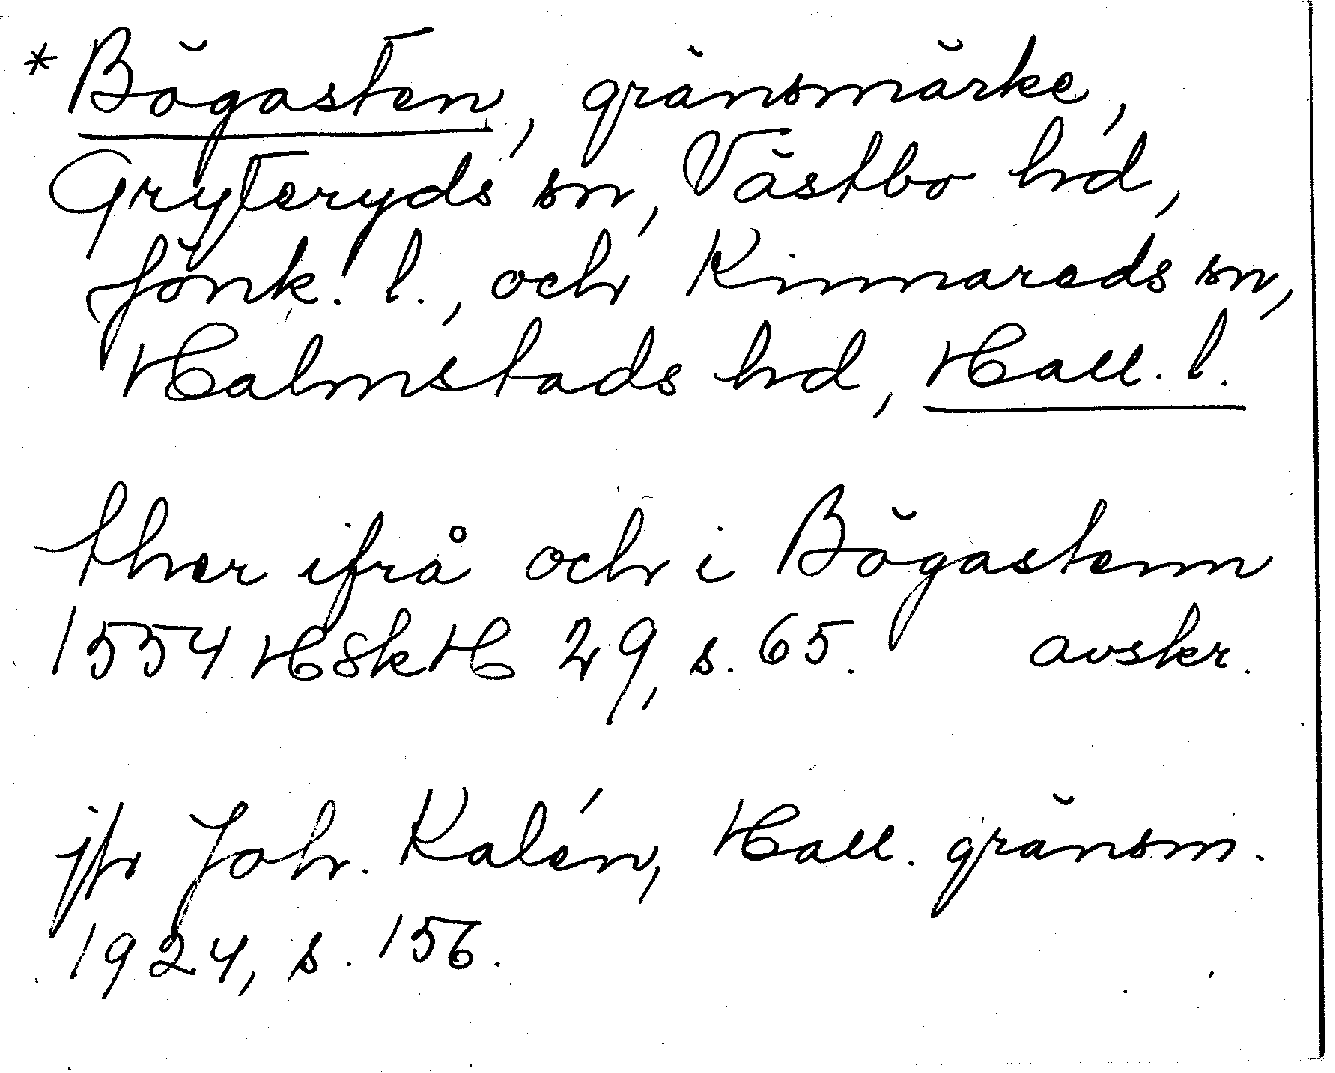 *Bögasten, gränsmärke,
Gryteryds sn, Västbo hd,
Jönk. l., och Kinnareds sn,
Halmstads hd, Hall. l.
ther ifrå och i Bögastenn
1554 HSkH 29, s. 65. avskr.
jfr Joh. Kalén, Hall. gränsm.
1924, s. 156.